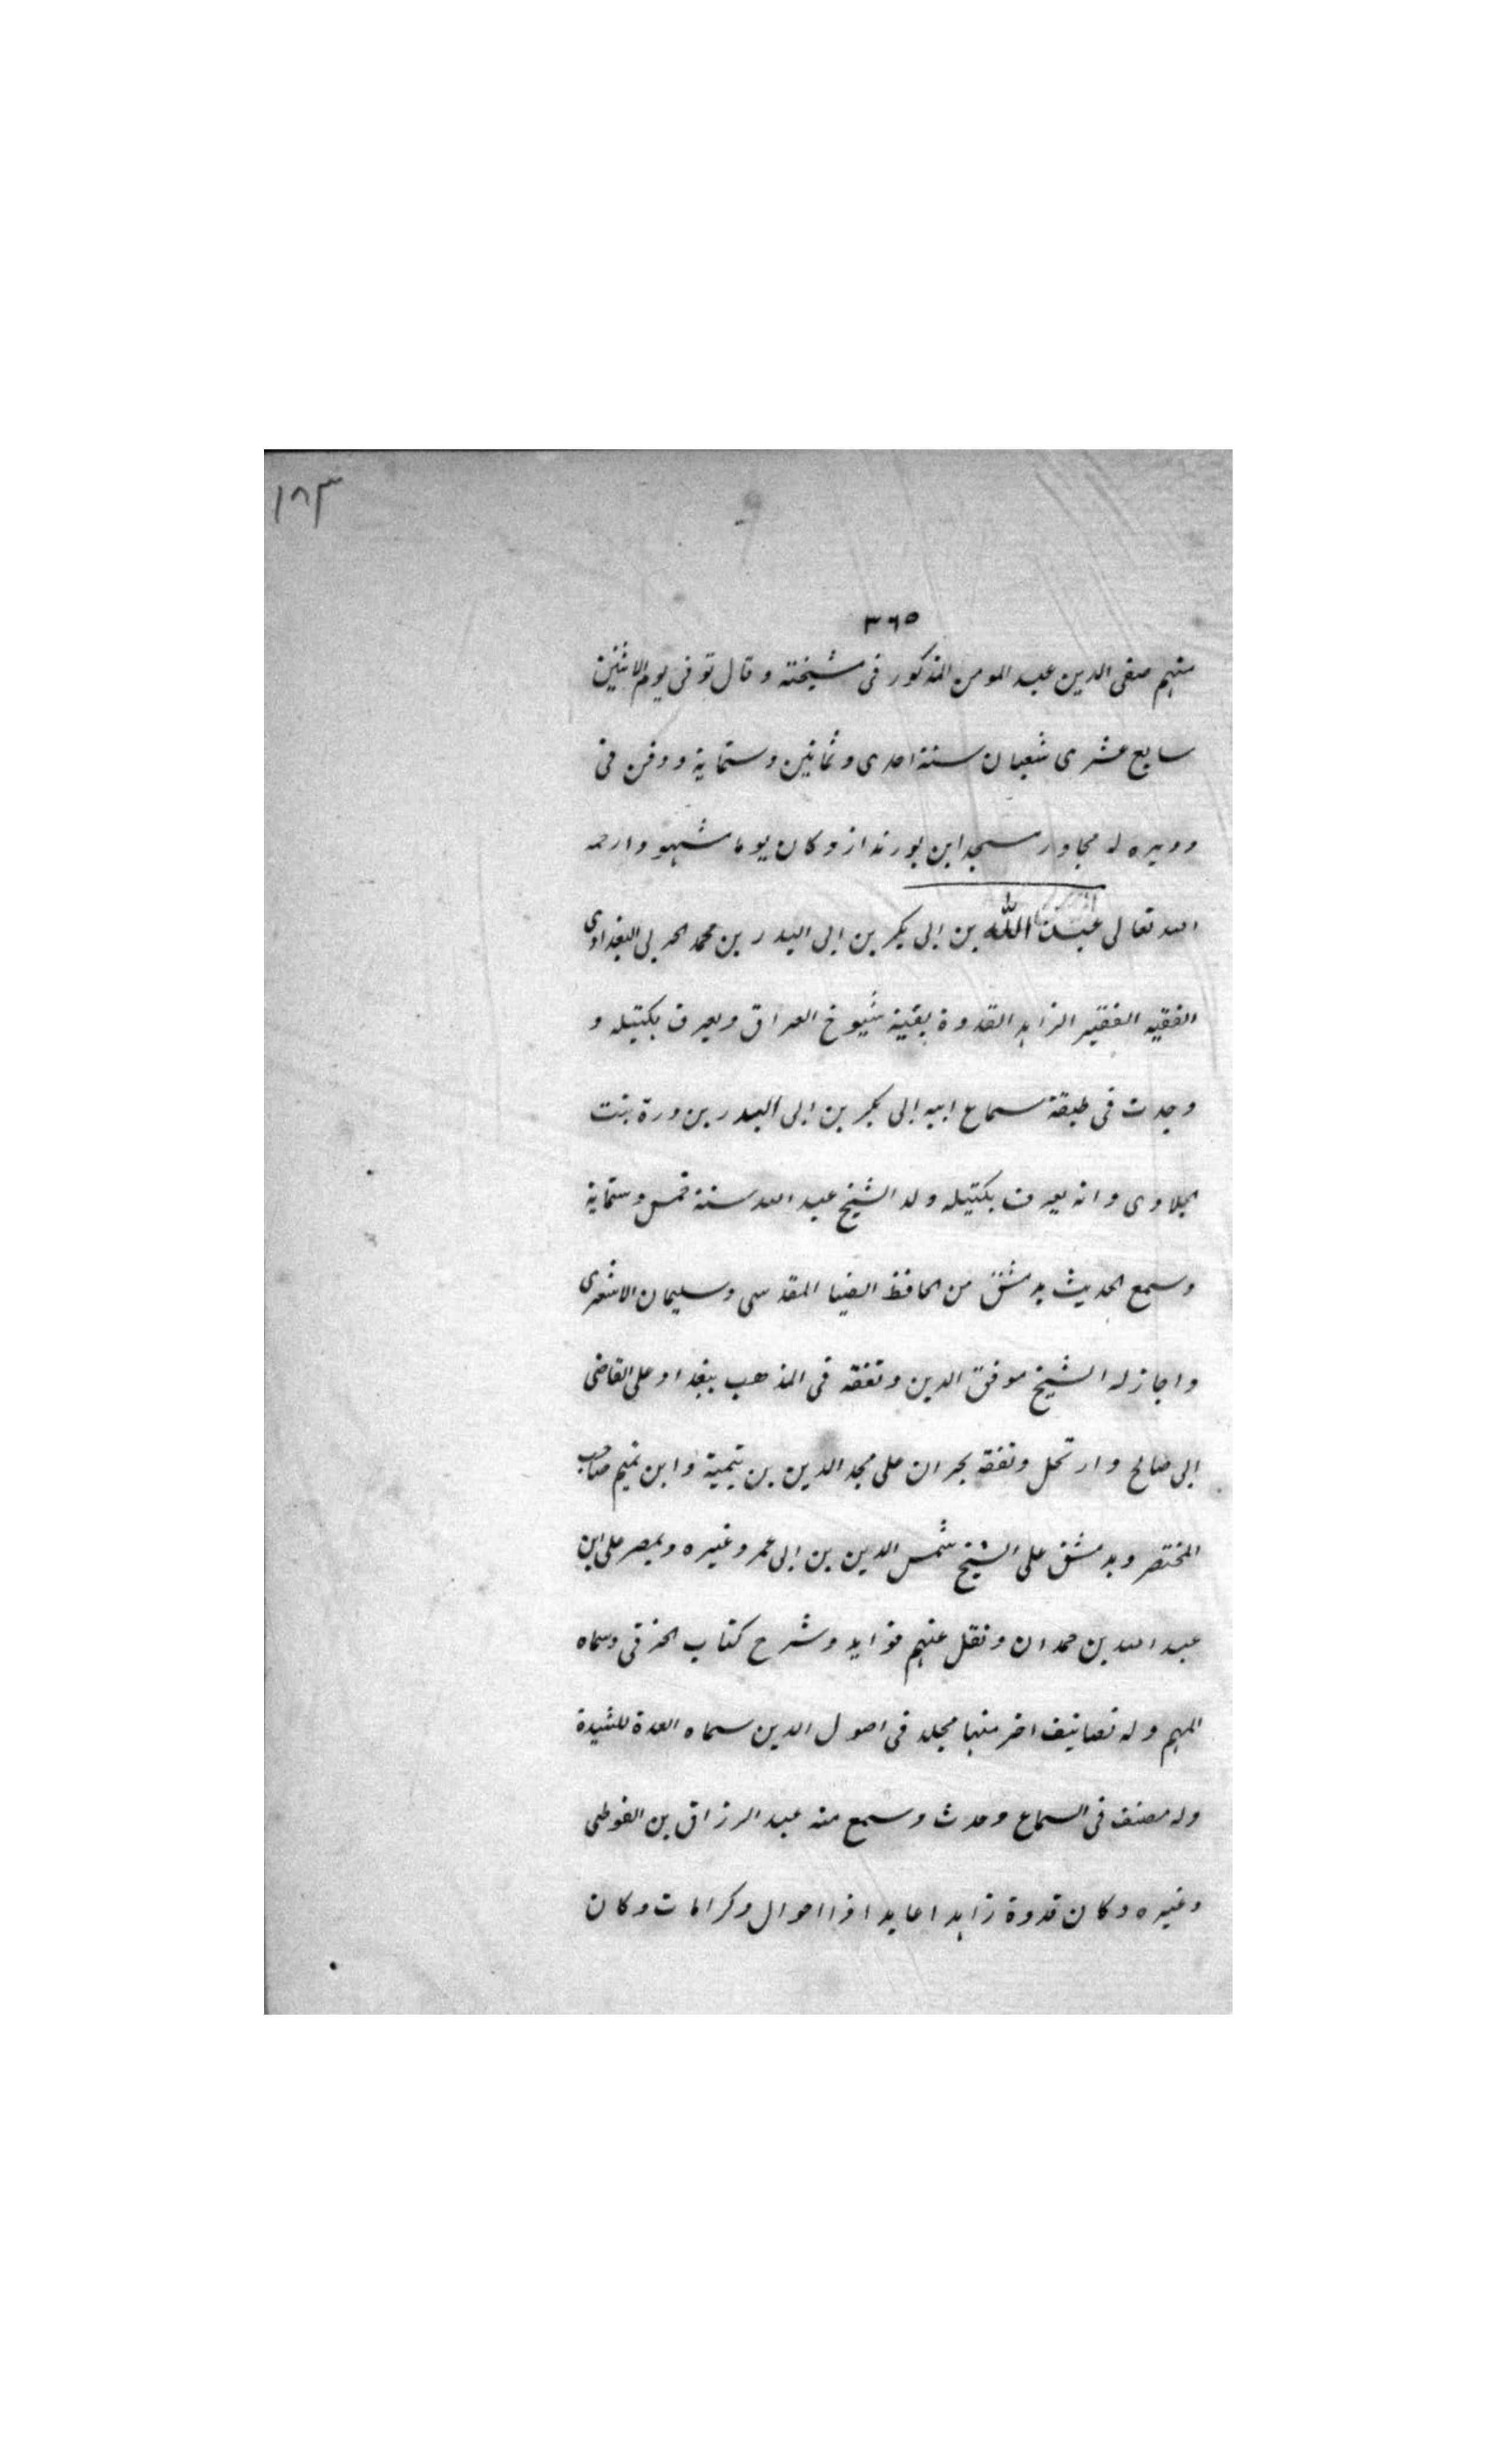 ١٨٣
٣٦٥
منهم صفى الدين عبد المومن المذكور فى مشيخته وقال توفى يوم الاثنين
سابع عشرى شعبان سنة احدى وثمانين وستماية ودفن فى
دويره له مجاور مسجد ابن بورنداز وكان يوما مشهودا رحمه
الله تعالى عبد الله بن ابى بكر بن ابى البدر بن محمد الحربى البغدادى
الفقيه الفقير الزاهد القدوة بقية شيوخ العراق ويعرف بكتيله و
وجدت فى طبقة سماع ابيه ابى بكر بن ابى البدر بن درة بنت
الحلاوى وانه يعرف بكتيله ولد الشيخ عبد الله سنة خمس وستماية
وسمع الحديث بدمشق من الحافظ الضيا المقدسى وسليمان الاشعرى
واجاز له الشيخ موفق الدين وتفقه فى المذهب ببغداد على القاضى
ابى صالح وارتحل وتفقه بحران على مجد الدين بن تيمية وابن تميم صاحب
المختصر وبدمشق على الشيخ شمس الدين بن ابى عمر وغيره وبمصر على ابن
عبد الله بن حمدان ونقل عنهم فوايد وشرح كتاب الخرقى وسماه
المهم وله تصانيف اخر منها مجلد فى اصول الدين سماه العدة للشيدة
وله مصنف فى السماع وحدث وسمع منه عبد الرزاق بن الفوطى
وغيره وكان قدوة زاهدا عابدا ذا احوال وكرامات وكان